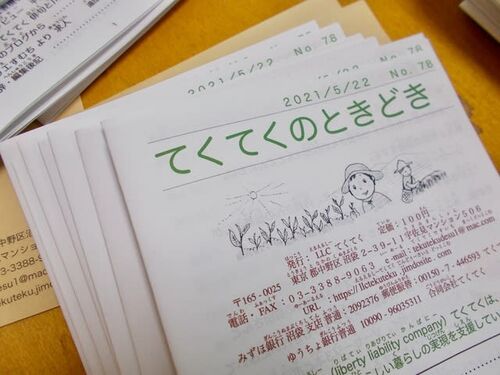 2021/5/22 No. 78
2021/5/22 No. 78
てくてくのときどき
発行：LLC てくてく 定価：100円
〒165-0025 東京都中野区沼袋 2-39-11 平佐良マンション506
電話・FAX：03-3388-9063 e-mail：tekutekudesu1@mac.com
URL：https://llctekuteku.jimdosite.com
みずほ銀行 沼袋支店 普通：2092376 郵便振替：00190-7-446593
ゆうちょ銀行 普通 10090-96035311 合同会社てくてく
(liberty liability company) てくてくは、
しい暮らしの実現を支援してい
編集後記
中野区沼
マンション
-3388-9
esu1@mac
kuteku.jimdo